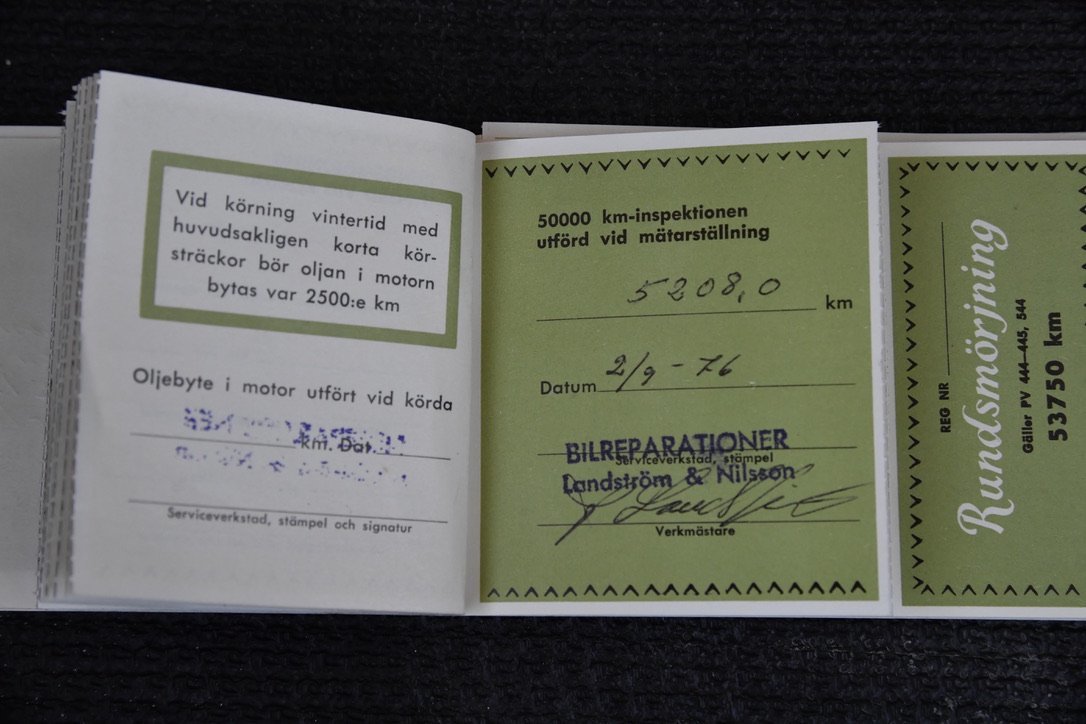 Vid körning vintertid med
huvudsakligen korta kör-
sträckor bör oljan i motorn
bytas var 2500:e km
Oljebyte i motor utfört vid körda
km. Dat.
Serviceverkstad, stämpel och signatur
50000 km-inspektionen
utförd vid mätarställning
5208,0 km
Datum 2/9 - 76
BILREPARATIONER
Serviceverkstad, stämpel
Landström & Nilsson
Verkmästare
REG NR
Rundsmörjning
Gäller PV 444-445, 544
53750 km